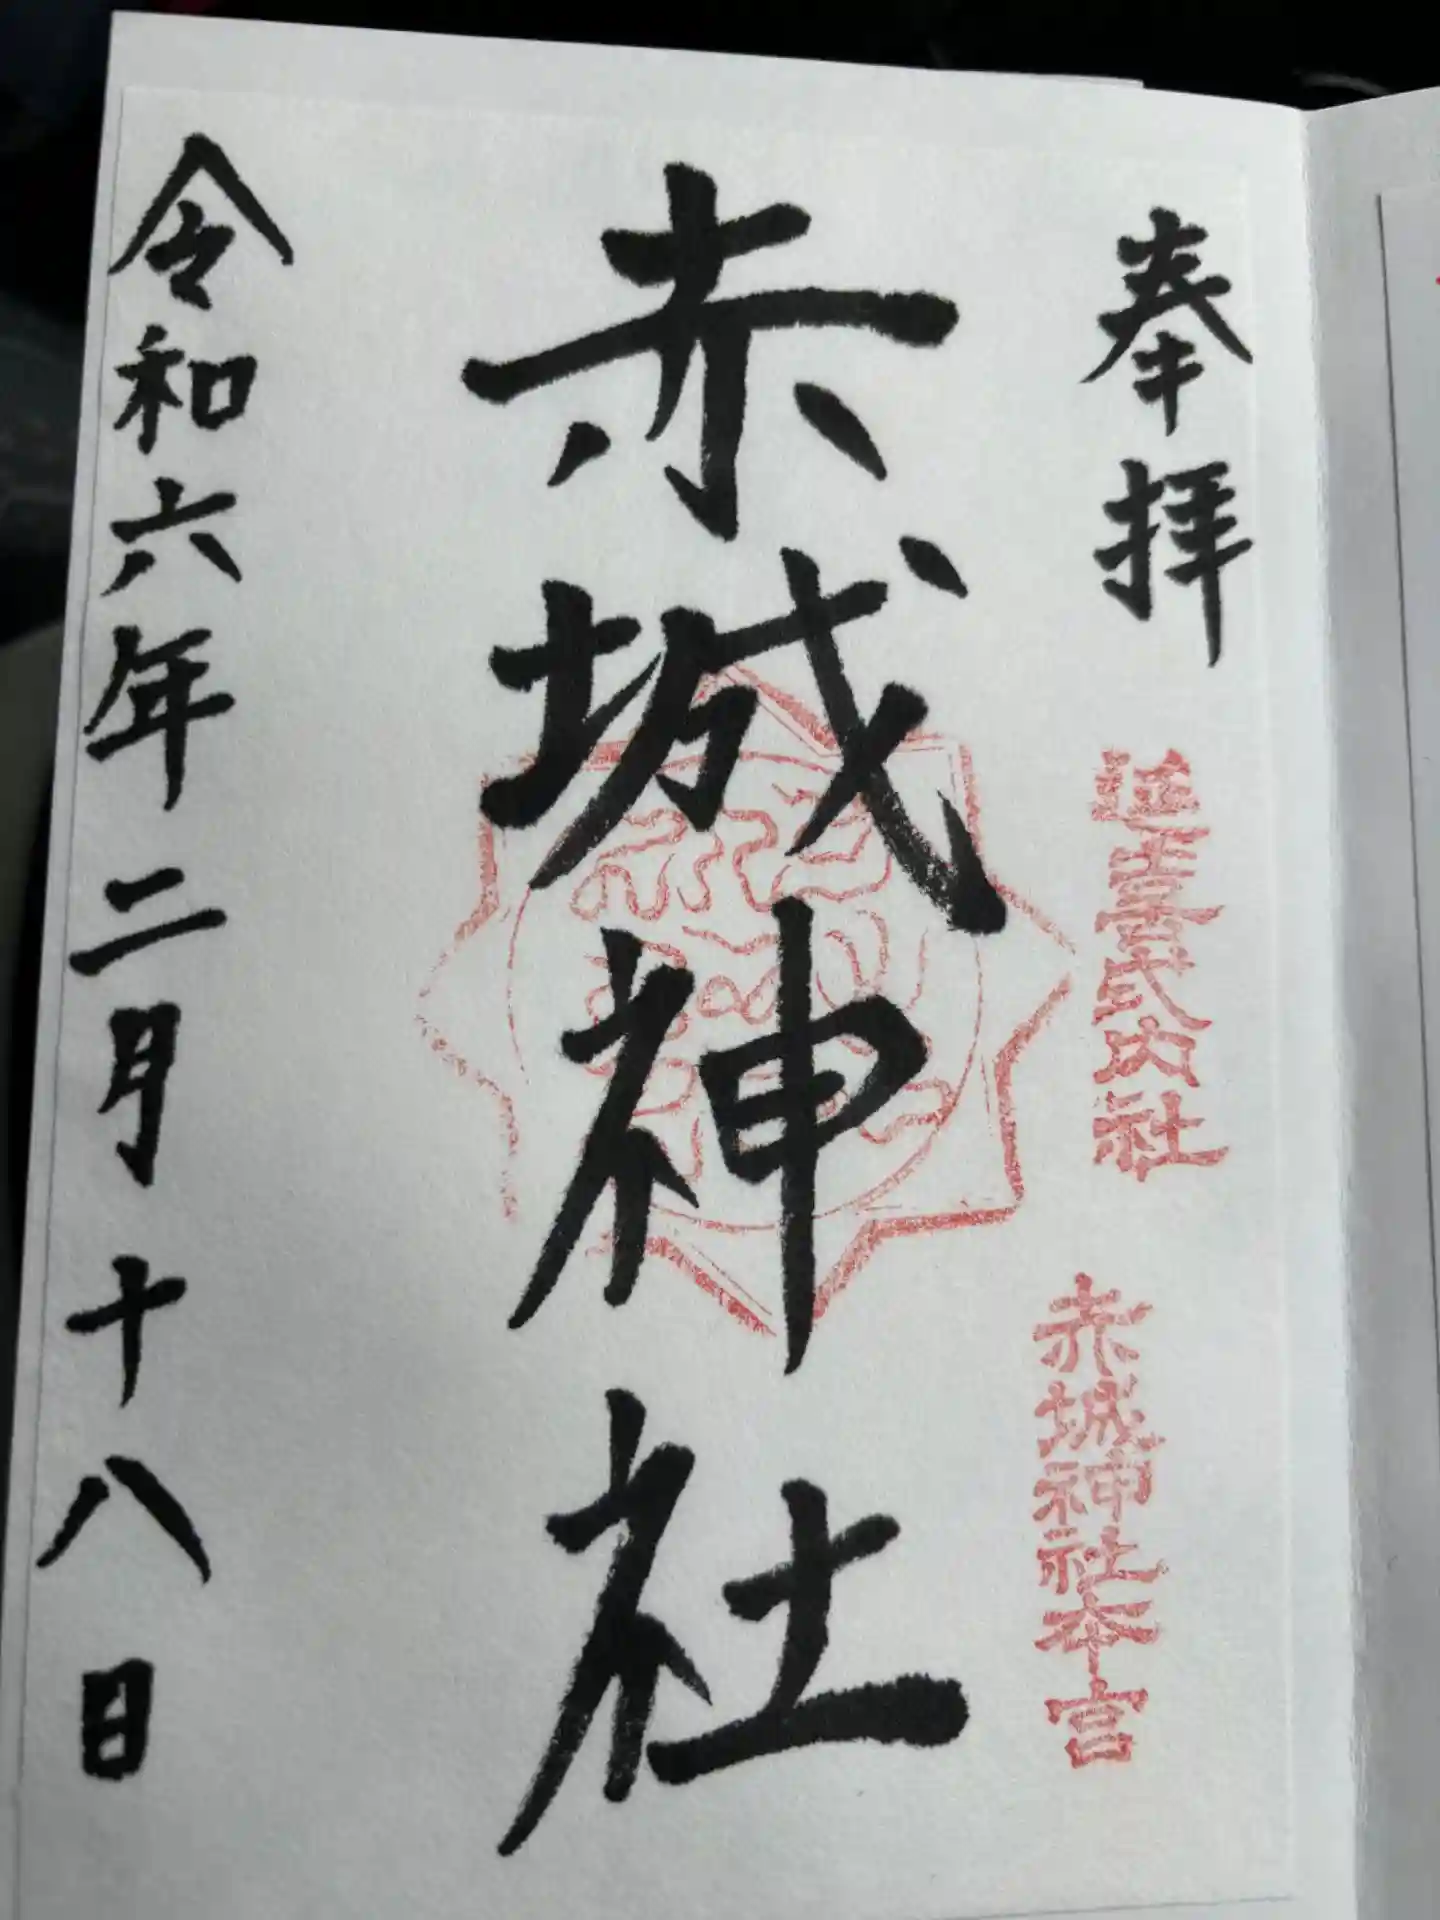 奉拝
延喜式内社
赤城神社本宮
赤城神社
令和六年二月十八日